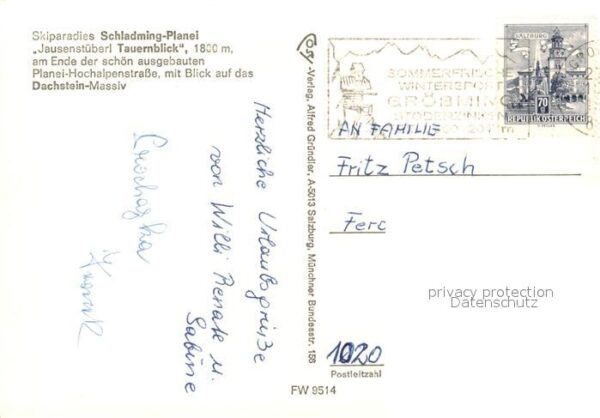 Skiparadies Schladming-Planei
„Jausenstüberl Tauernblick", 1800 m,
am Ende der schön ausgebauten
Planei-Hochalpenstraße, mit Blick auf das
Dachstein-Massiv
Herzliche Urlaubsgrüße
von Willi Renate u.
Sabine
-Verlag, Alfred Gründler, A-5013 Salzburg, Münchner Bundesstr. 158
SOMMERFRISCHE
WINTERSPORT
GRÖBMING
STODERZINKEN
SALZBURG
70
REPUBLIK ÖSTERREICH
AN FAMILIE
Fritz Petsch
Ferc
privacy protection
Datenschutz
1020
Postleitzahl
FW 9514